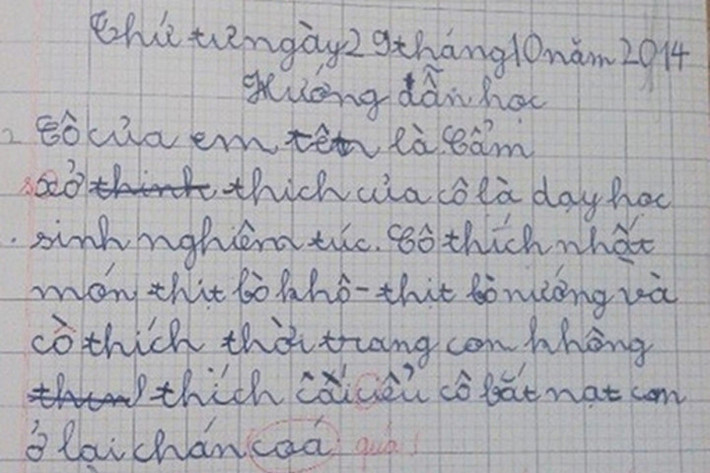 Thứ tư ngày 29 tháng 10 năm 2014
Hướng dẫn học
Cô của em tên là Cẩm
sở thinh thich của cô là dạy học
sinh nghiêm túc. Cô thích nhất
món thịt bò khô - thịt bò nướng và
cồ thích thời trang con không
thích cái kiểu cô bắt nạt con
ở lại chán coá quá!